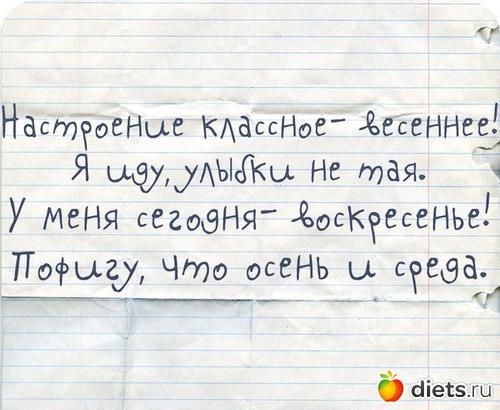 Настроение классное- весеннее!
Я иду, улыбки не тая.
У меня сегодня- воскресенье!
Пофигу, что осень и среда.
diets.ru